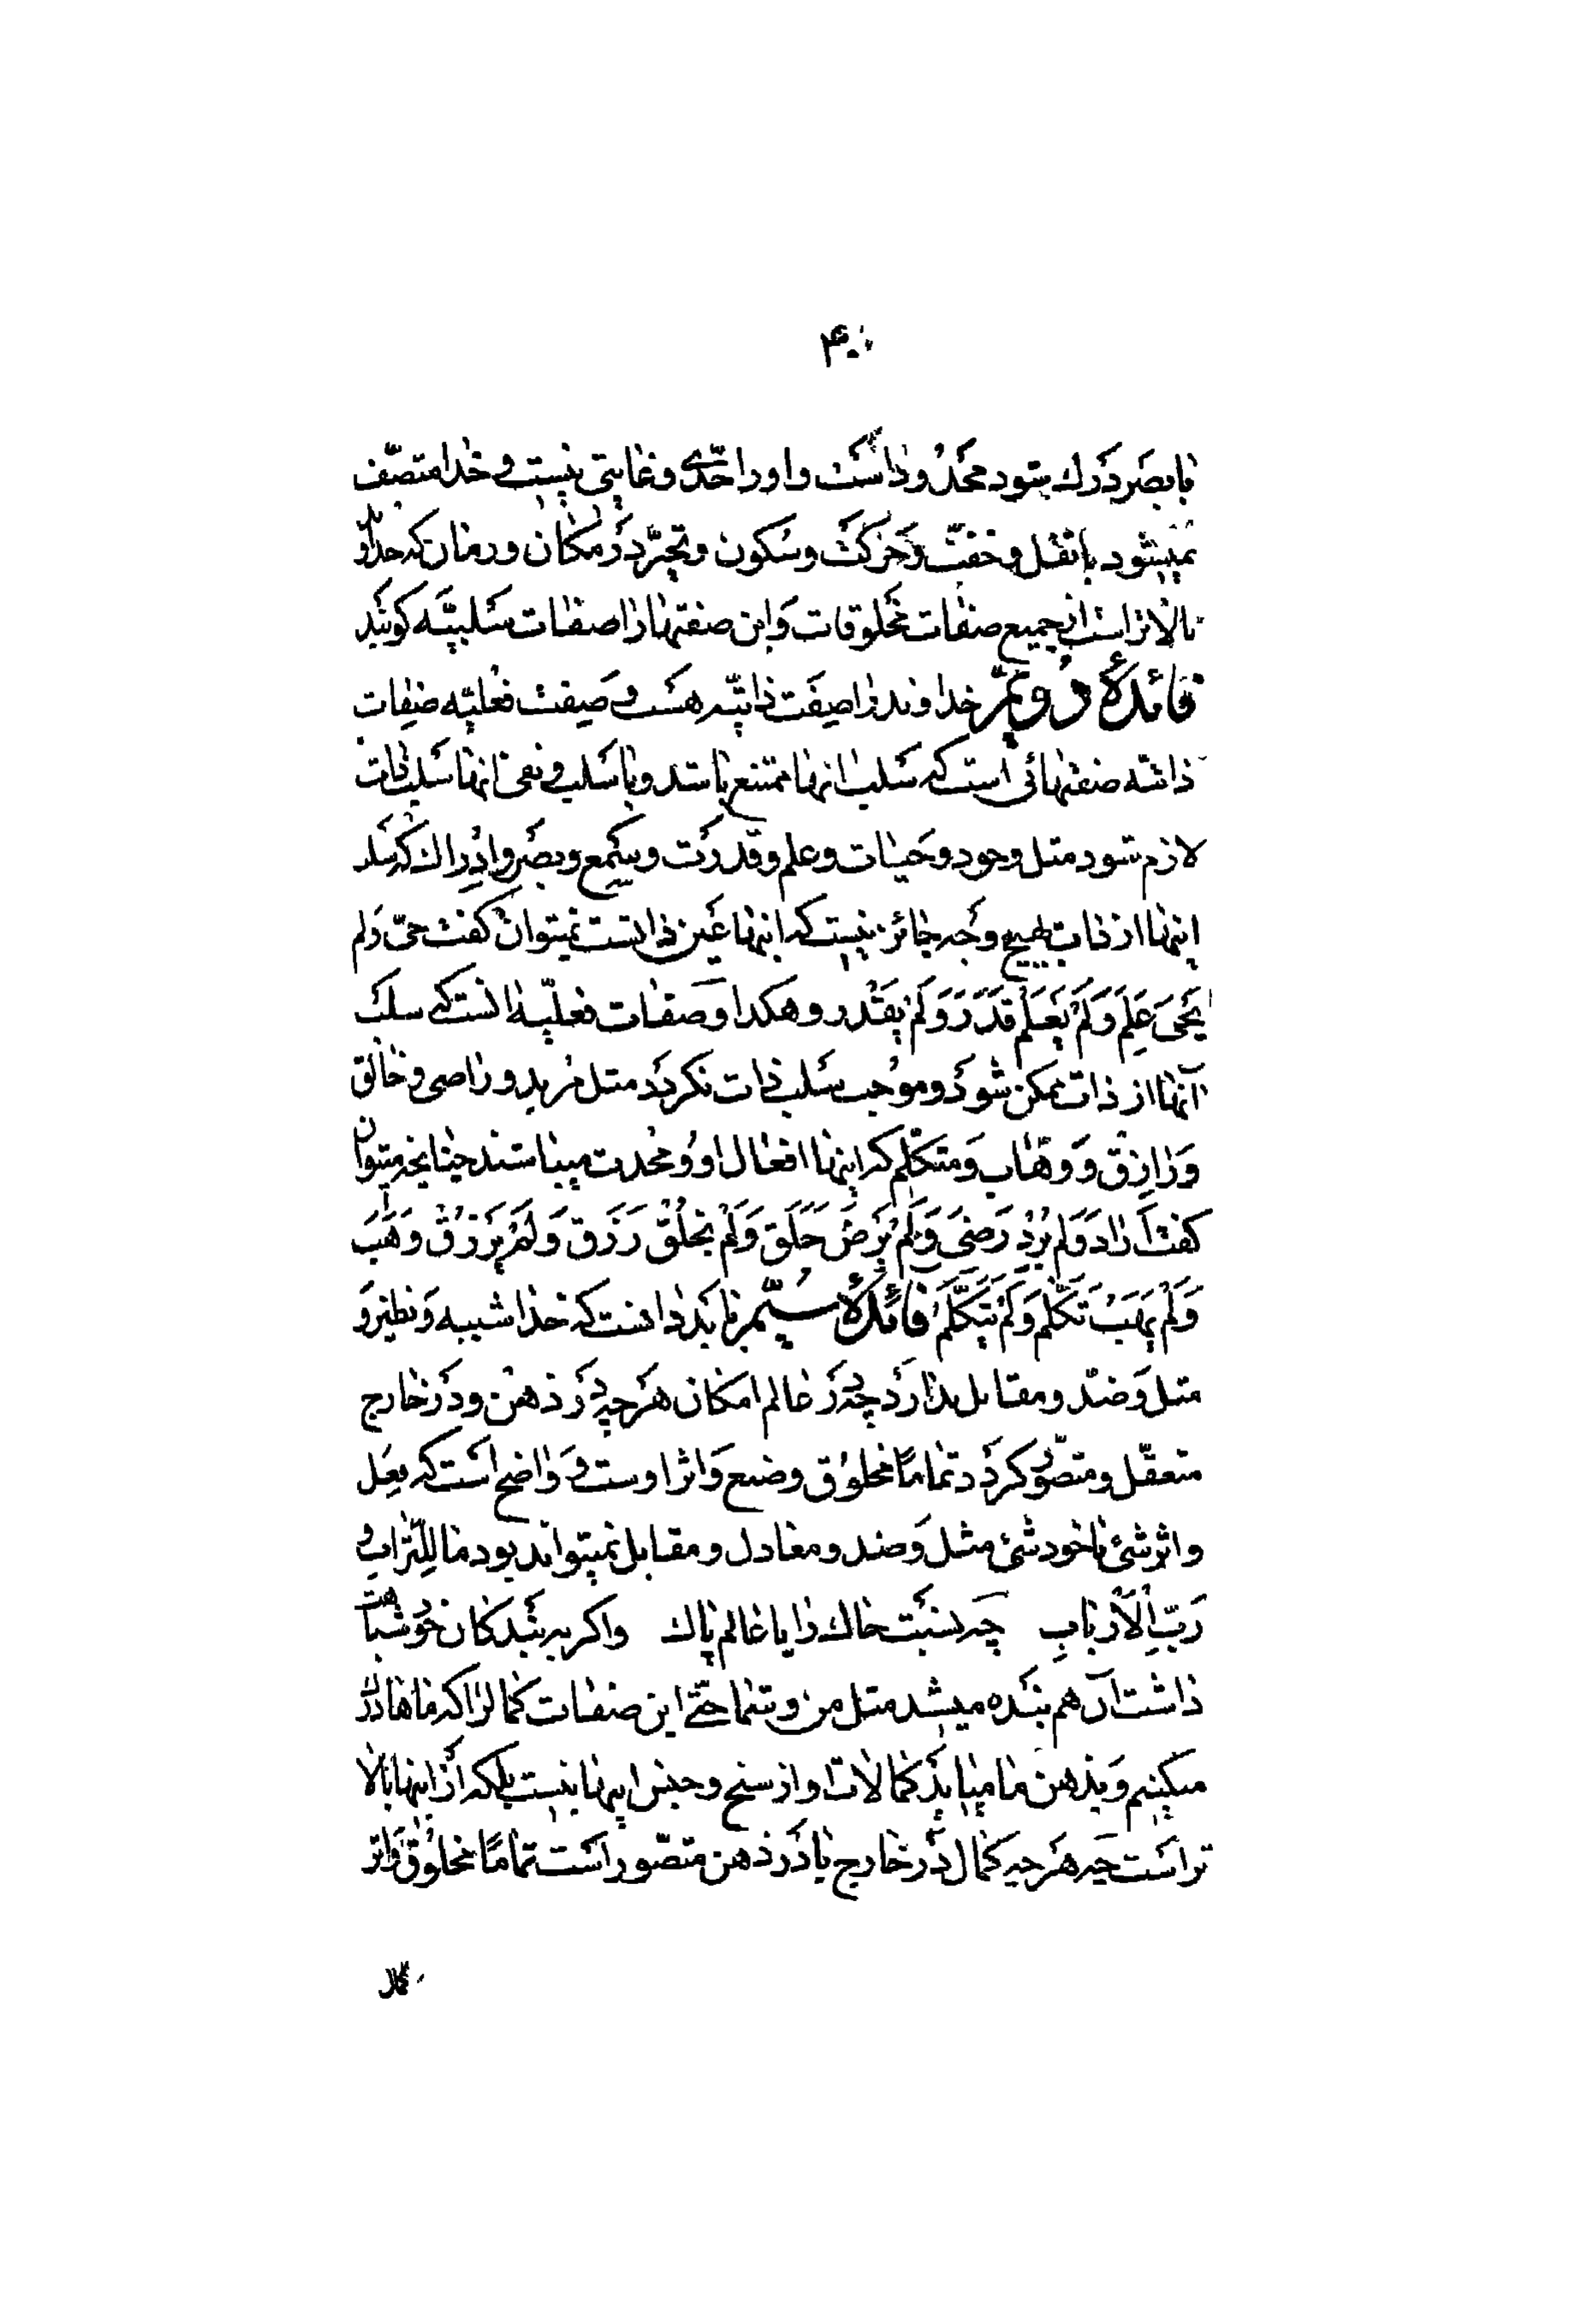 ۴۰
با بصر درک شود محدود است و او را حدّی و غایتی نیست و خدا متصّف
نمیشود با ثقل و خفّت و حَرکت و سُکون و تجرّد دَر مکان و زمان که خدا
بالاتر است از جمیع صفات مخلوقات وَ این صفتها را صفات سَلبیّه کویند
فائدهٔ دُویّم خداوند را صفت ذاتیّه هست و صفت فعلیّه صفات
ذاتیّه صفتهائی است که سَلب انها ممتنع باشد و با سَلب و نفی انها سَلب ذات
لازم شود مثل وجود و حیات و علم و قدرت و سَمع و بصَر و ادراک که سَلب
اینها از ذات بهیچ وَجه جائز نیست که اینها عَین ذاتست نمیتوان کفت حیّ وَلم
یَحیَ عَلِمَ وَلَم یَعلَم قَدَرَ وَلَم یَقدر و هکذا و صَفات فعلیّه انست که سلب
آنها از ذات ممکن شود و موُجب سَلب ذات نکردَد مثل مُرید و راضی و خالق
وَ رازق وَ وهّاب وَ متکلّم که اینها افعال او وُ مُحدث میباشند چنانچه میتوان
کفت اَرادَ وَلَم یُرِد رَضِیَ وَلَم یَرضَ خَلَقَ وَلَم یَخلُق رَزَقَ وَلَم یَرزُق وَهَبَ
وَلَم یَهَب تَکَلَّم وَلَم یَتَکَلَّم فائدهٔ سیّم باید دانست که خدا شبیه وَ نظیر وَ
مثل وَ ضدّ و مقابل ندارد چه دَر عالم امکان هَر چه دَر ذهن و دَر خارج
متعقّل و متصوّر کردَد تماماً مخلوُق و صنع وَ اثر اوست وَ وَاضح است که فِعل
و اثر شئ با خود شئ مثل وَ ضد و معادل و مقابل نمیتواند بود ما لِلتّرابِ وَ
رَبِّ الاَربابِ چه نسبَت خاک را با عالم پاک و اکر به بندکان خود شباهت
داشت آن هم بنده میشد مثل من و شما حتّی این صفات کمال را که ماها درک
میکنیم وَ بذهن ما میاید کمالات او از سنخ و جنس اینها نیست بلکه از اینها بالا
تر است چه هر چه کمال دَر خارج یا دَر ذهن متصّور است تماماً مخلوُق وَ اثر
کمال